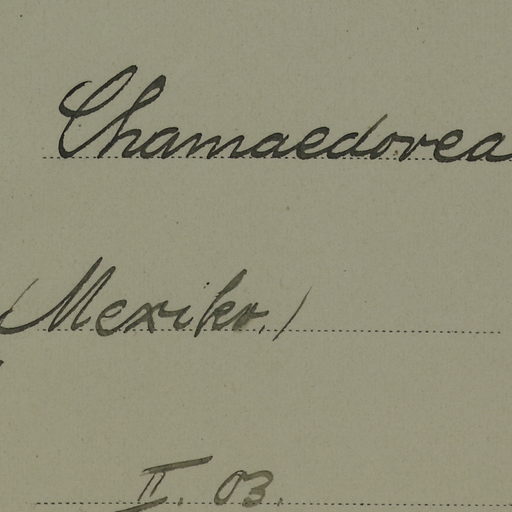 Chamaedorea
(Mexiko.)
II. 03.